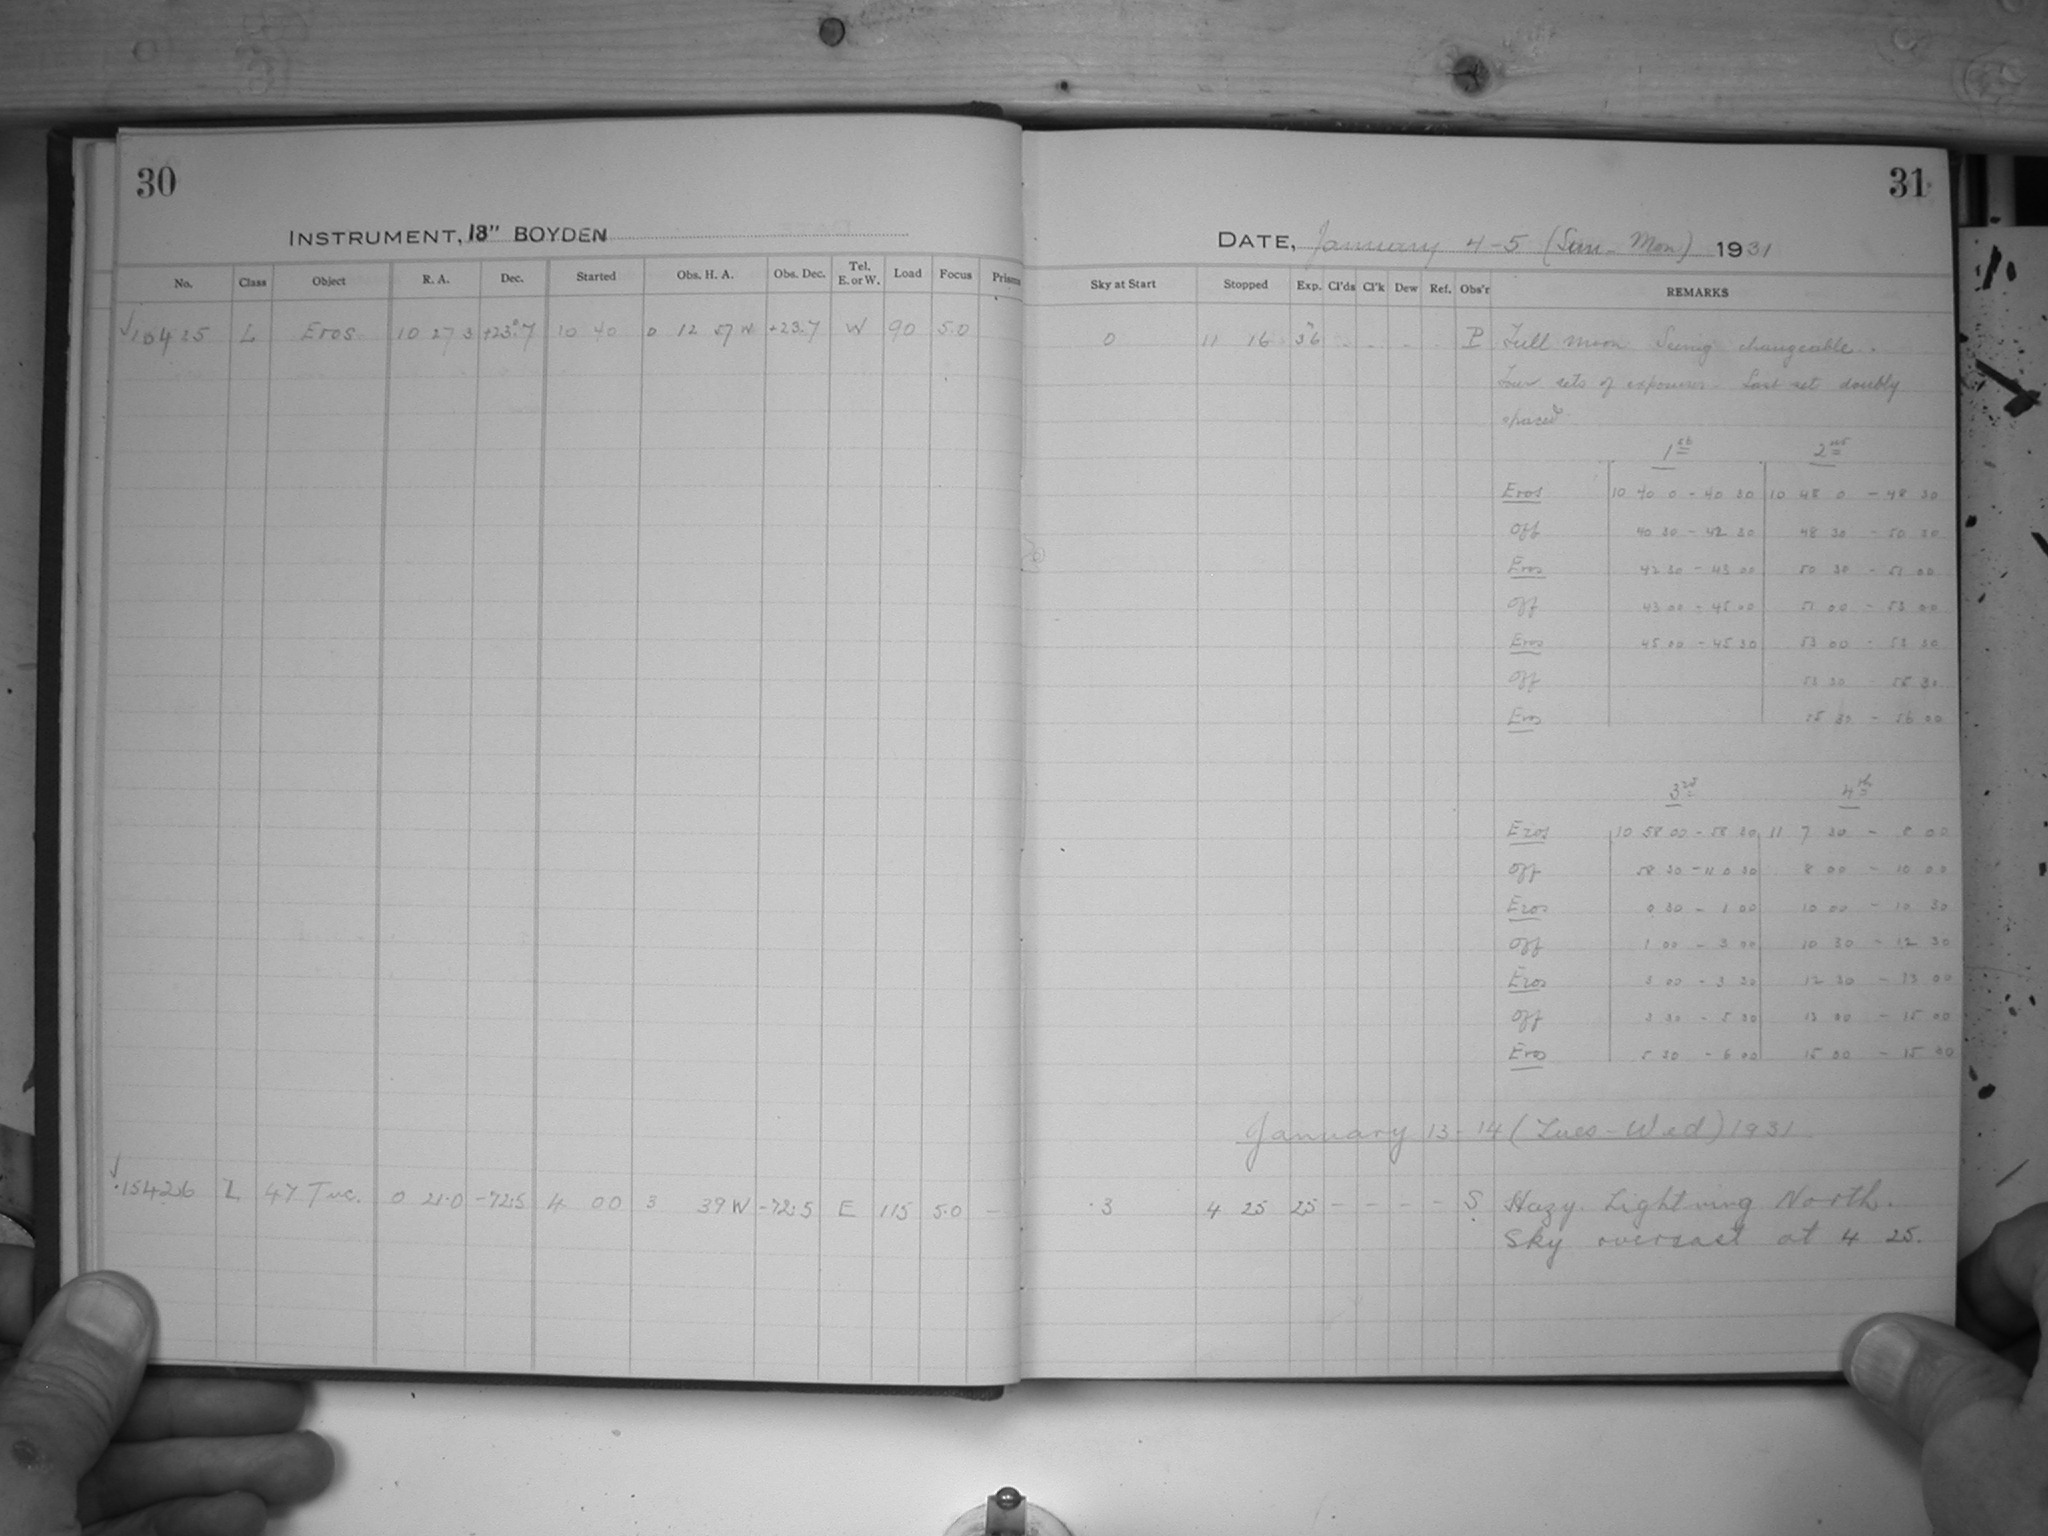 30
INSTRUMENT, 13" BOYDEN
No. Class Object R. A. Dec. Started Obs. H. A. Obs. Dec. Tel. E. or W. Load Focus Prisms
15425 L Eros 10 27 3 +23°.7 10 40 0 12 57 W +23.7 W 90 5.0
15426 L 47 Tuc. 0 21.0 -72.5 4 00 3 39 W -72.5 E 115 5.0 -
31
DATE, January 4-5 (Sun-Mon) 1931
Sky at Start Stopped Exp. Cl'ds Cl'k Dew Ref. Obs'r REMARKS
0 11 16 36 P Full moon Seeing changeable.
Four sets of exposures - Last set doubly
spaced
1st 2nd
Eros 10 40 0 - 40 30 10 48 0 - 48 30
Off 40 30 - 42 30 48 30 - 50 30
Eros 42 30 - 43 00 50 30 - 51 00
Off 43 00 - 45 00 51 00 - 53 00
Eros 45 00 - 45 30 53 00 - 53 30
Off 53 30 - 55 30
Eros 55 30 - 56 00
3rd 4th
Eros 10 58 00 - 58 30 11 7 30 - 8 00
Off 58 30 - 11 0 30 8 00 - 10 00
Eros 0 30 - 1 00 10 00 - 10 30
Off 1 00 - 3 00 10 30 - 12 30
Eros 3 00 - 3 30 12 30 - 13 00
Off 3 30 - 5 30 13 00 - 15 00
Eros 5 30 - 6 00 15 00 - 15
January 13-14 (Tues-Wed) 1931
.3 4 25 25 - - - - S Hazy. Lightning North.
Sky overcast at 4 25.